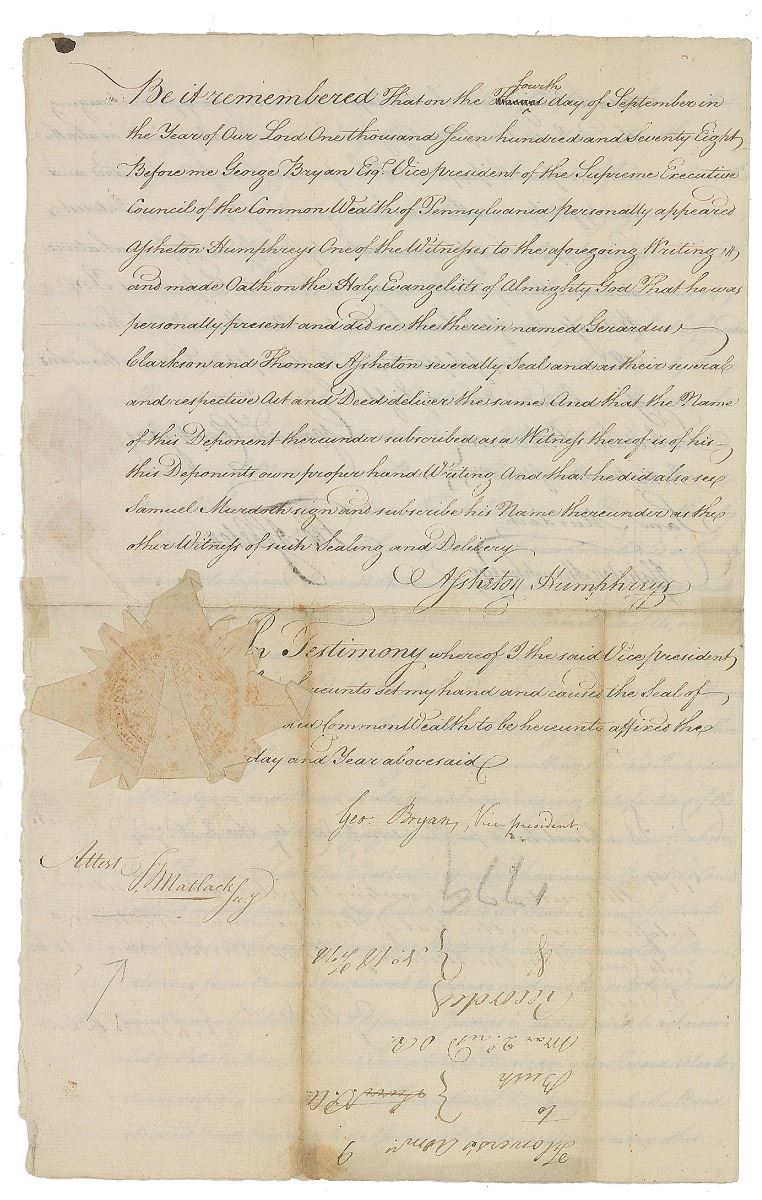 Be it remembered That on the fourth day of September in
the Year of Our Lord One thousand Seven hundred and Seventy Eight
Before me George Bryan Esqr. Vice president of the Supreme Executive
Council of the Common Wealth of Pennsylvania personally appeared
Assheton Humphreys One of the Witnesses to the aforegoing Writing
and made Oath on the Holy Evangelists of Almighty God That he was
personally present and did see the therein named Gerardus
Clarkson and Thomas Assheton severally Seal and as their several
and respective Act and Deed deliver the same And that the Name
of this Deponent thereunder subscribed as a Witness thereof is of his
this Deponents own proper hand Writing And that he did also see
Samuel Murdoch sign and subscribe his Name thereunder as the
other Witness of such Sealing and Delivery
Assheton Humphreys
In Testimony whereof I the said Vice president
hereunto set my hand and caused the Seal of
said Common Wealth to be hereunto affixed the
day and Year abovesaid
Geo. Bryan, Vice president.
Attest
T Matlack Secy
1779
Recorded
to
Bush